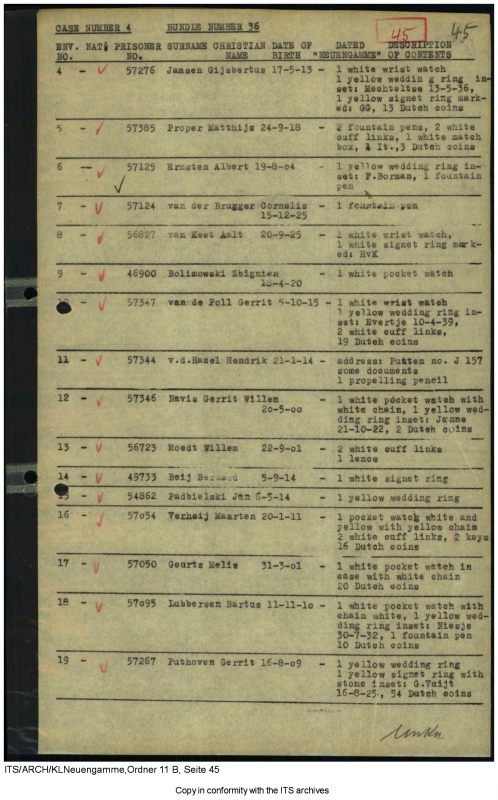 45
45
CASE NUMBER 4 BUNDLE NUMBER 36
ENV. NAT. PRISONER SURNAME CHRISTIAN DATE OF DATED DESCRIPTION
NO. NO. NAME BIRTH "NEUENGAMME" OF CONTENTS
4 - 57276 Jansen Gijsbertus 17-5-13 - 1 white wrist watch
1 yellow wedding ring in-
set: Mechteltse 13-5-36,
1 yellow signet ring mark-
ed: GG, 13 Dutch coins
5 - 57385 Proper Matthijs 24-9-18 - 2 fountain pens, 2 white
cuff links, 1 white match
box, 1 lt.,3 Dutch coins
6 -- 57125 Ernsten Albert 19-8-04 - 1 yellow wedding ring in-
set: F.Borman, 1 fountain
pen
7 - 57124 van der Brugger Cornelis - 1 fountain pen
15-12-25
8 - 56827 van Keet Aalt 20-9-25 - 1 white wrist watch,
1 white signet ring mark-
ed: HvK
9 - 46900 Bolimowski Zbignien - 1 white pocket watch
18-4-20
- 57347 van de Poll Gerrit 5-10-15 - 1 white wrist watch
1 yellow wedding ring in-
set: Evertje 10-4-39,
2 white cuff links,
19 Dutch coins
11 - 57344 v.d.Hazel Hendrik 21-1-14 - address: Putten no. J 157
some documents
1 propelling pencil
12 - 57346 Navis Gerrit Willem - 1 white pocket watch with
20-5-00 white chain, 1 yellow wed-
ding ring inset: Janne
21-10-22, 2 Dutch coins
13 - 56723 Moedt Willem 22-9-01 - 2 white cuff links
1 lence
14 - 49733 Beij Bernard 5-9-14 - 1 white signet ring
15 - 54862 Padbielski Jan 6-5-14 - 1 yellow wedding ring
16 - 57054 Verheij Maarten 20-1-11 - 1 pocket watch white and
yellow with yellow chain
2 white cuff links, 2 keys
16 Dutch coins
17 - 57050 Geurts Melis 31-3-01 - 1 white pocket watch in
case with white chain
20 Dutch coins
18 - 57095 Lubbersen Bartus 11-11-10 - 1 white pocket watch with
chain white, 1 yellow wed-
ding ring inset: Niesje
30-7-32, 1 fountain pen
10 Dutch coins
19 - 57267 Puthoven Gerrit 16-8-09 - 1 yellow wedding ring
1 yellow signet ring with
stone inset: G.Vuijt
16-8-25, 54 Dutch coins
ITS/ARCH/KLNeuengamme,Ordner 11 B, Seite 45
Copy in conformity with the ITS archives